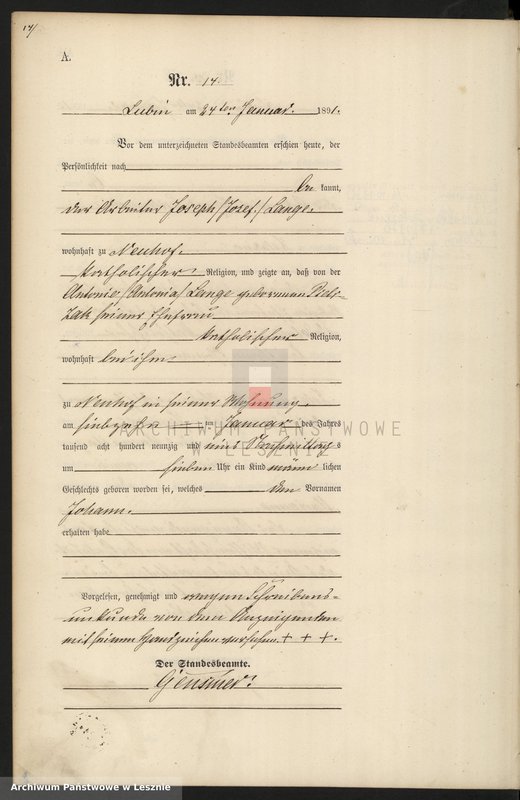 17/
A.
Nr. 14.
Lubin am 24ten Januar 1891.
Vor dem unterzeichneten Standesbeamten erschien heute, der
Persönlichkeit nach
be kannt,
der Arbeiter Joseph /Josef/ Lange.
wohnhaft zu Neuhof.
katholischer Religion, und zeigte an, daß von der
Antonie /Antonia/ Lange geborenen
seiner Ehefrau
katholischer Religion,
wohnhaft bei ihm
zu Neuhof in seiner Wohnung
am siebzehn ten Januar des Jahres
tausend acht hundert neunzig und eins Vormittag s
um sieben Uhr ein Kind männ lichen
Geschlechts geboren worden sei, welches den Vornamen
Johann.
erhalten habe
Vorgelesen, genehmigt und wegen Schreibens-
unkunde von dem Anzeigenden
mit seinem Handzeichen versehen + + +.
Der Standesbeamte.
ARCHIWUM PAŃSTWOWE
W LESZNIE
Archiwum Państwowe w Lesznie